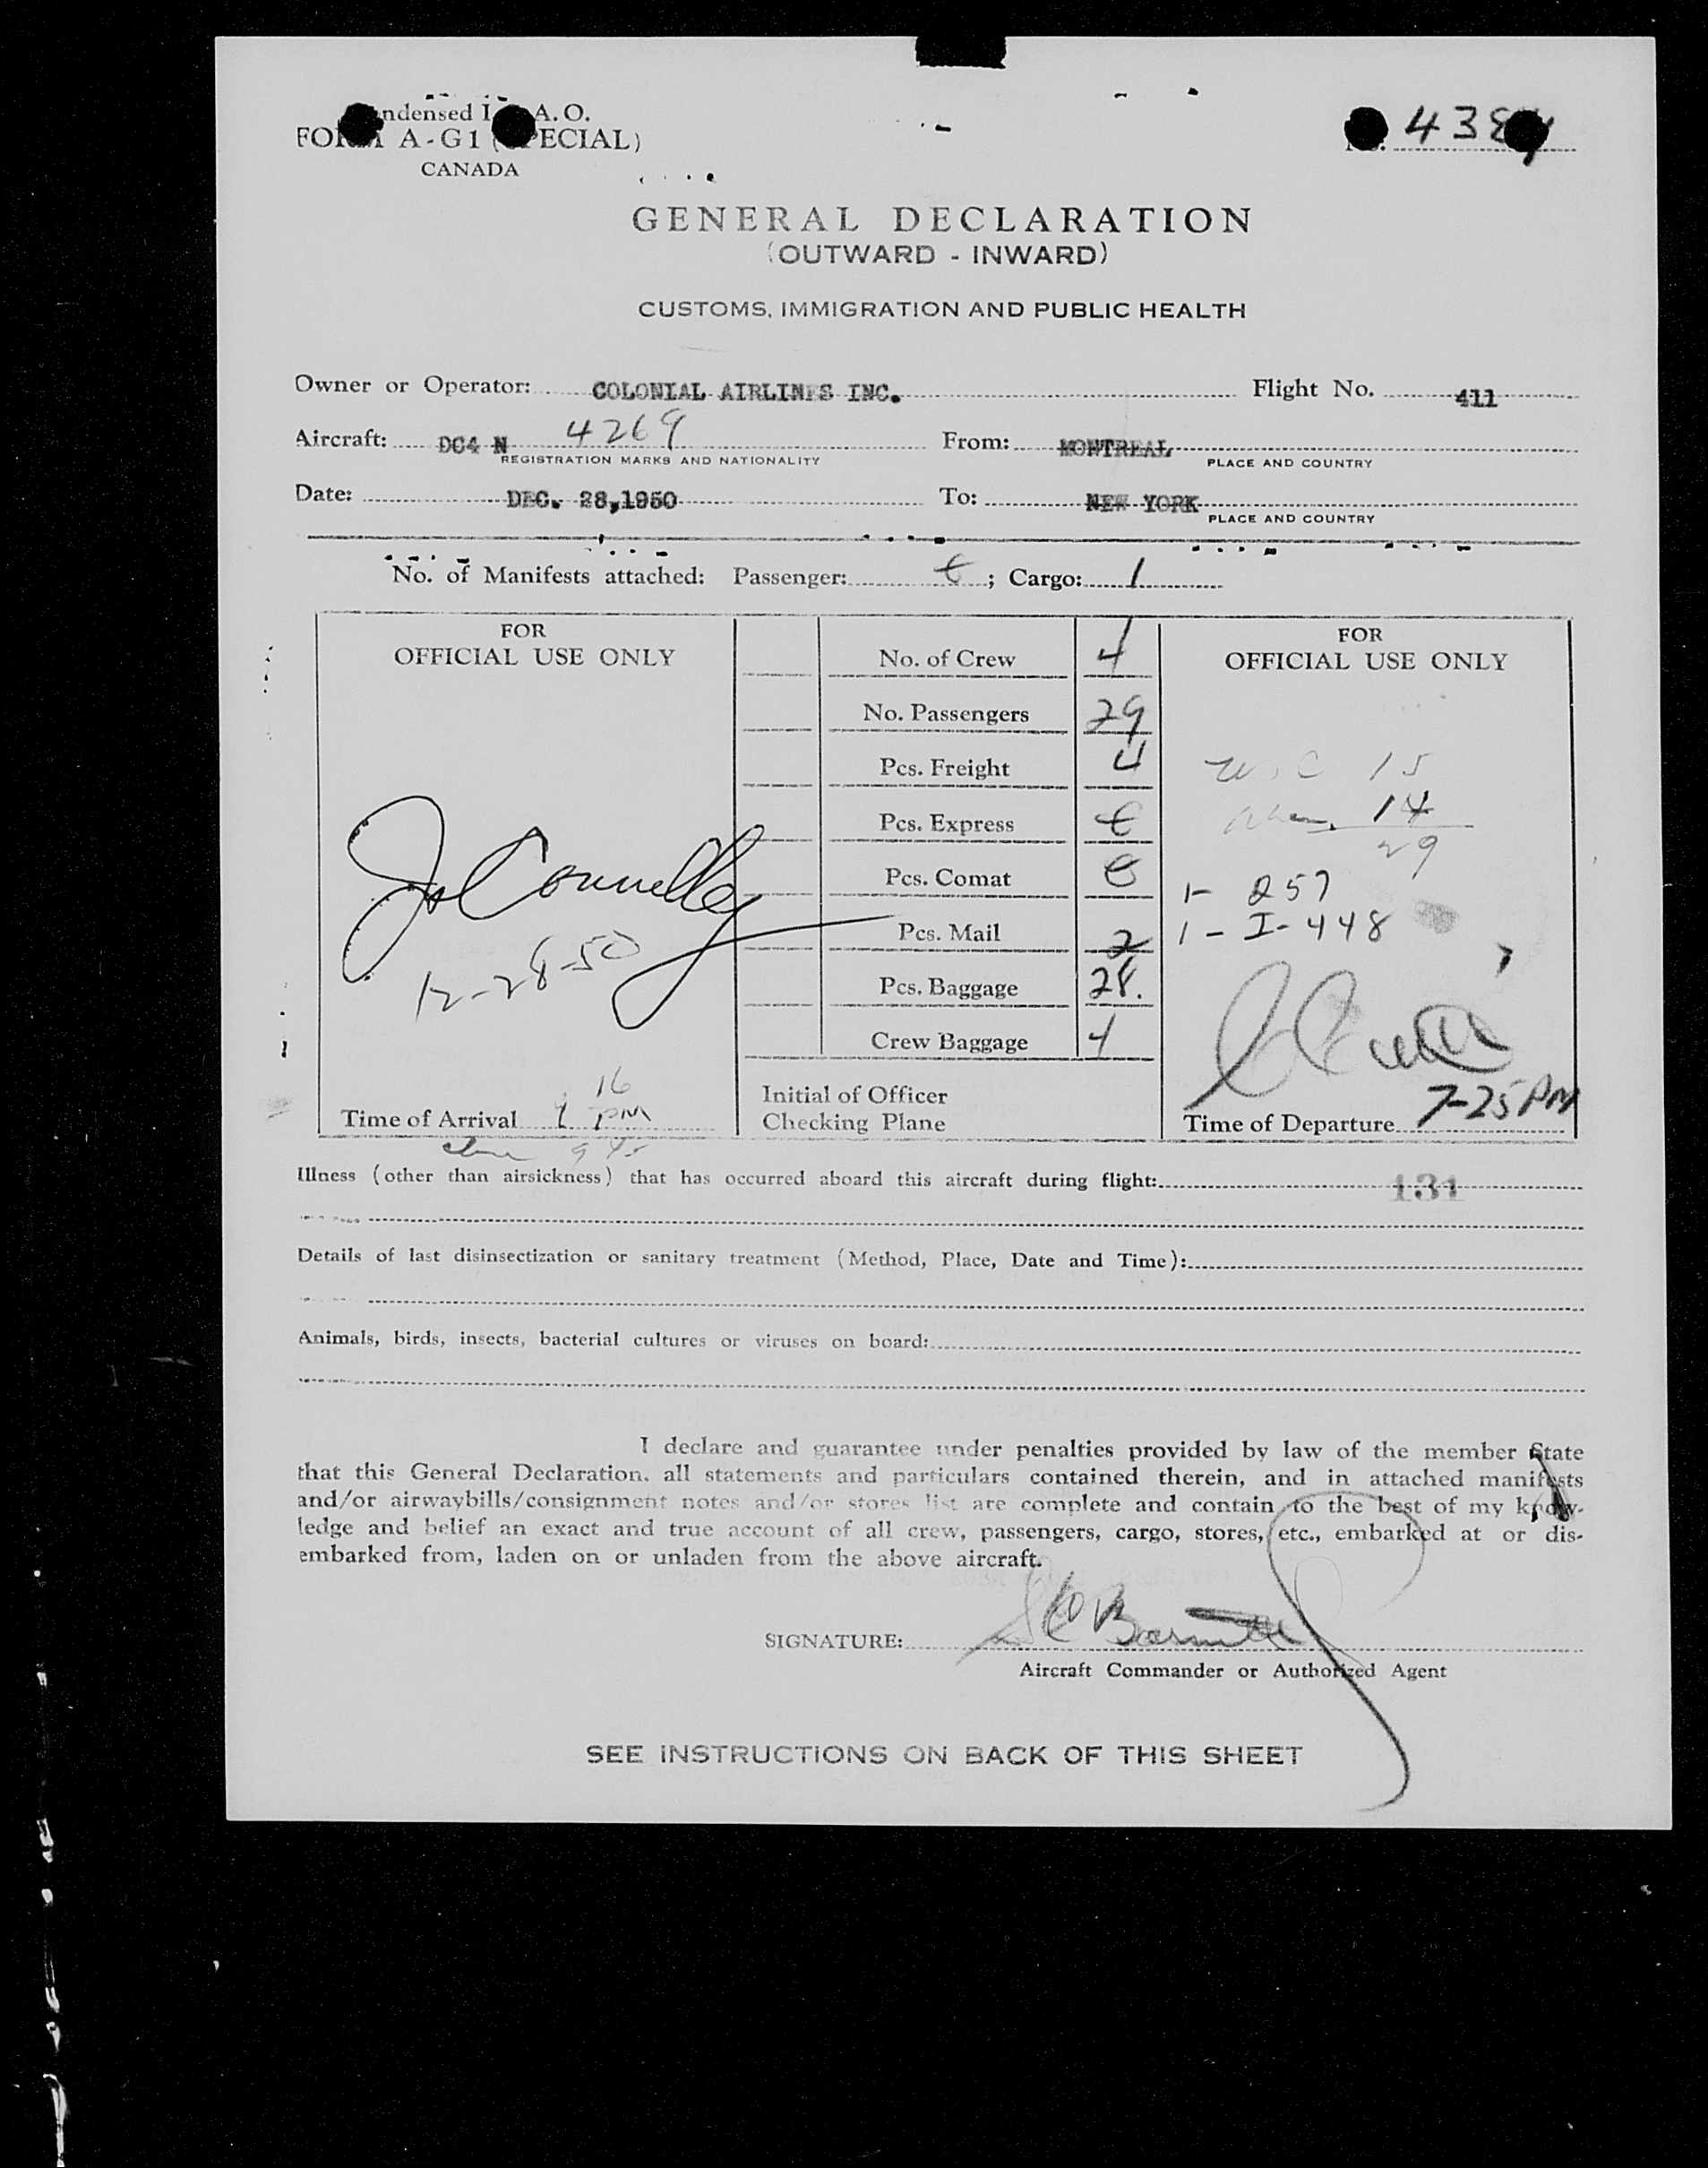 ndensed I A. O.
FORM A-G1 (SPECIAL)
CANADA
No. 438
GENERAL DECLARATION
(OUTWARD - INWARD)
CUSTOMS, IMMIGRATION AND PUBLIC HEALTH
Owner or Operator: COLONIAL AIRLINES INC. Flight No. 411
Aircraft: DC4 N 4269 From: MONTREAL
REGISTRATION MARKS AND NATIONALITY PLACE AND COUNTRY
Date: DEC. 28,1950 To: NEW YORK
PLACE AND COUNTRY
No. of Manifests attached: Passenger: ; Cargo: 1
FOR
OFFICIAL USE ONLY
Connelly
12-28-50
16
Time of Arrival PM
No. of Crew 4
No. Passengers 29
Pcs. Freight 4
Pcs. Express
Pcs. Comat
Pcs. Mail 2
Pcs. Baggage 28.
Crew Baggage 4
Initial of Officer
Checking Plane
FOR
OFFICIAL USE ONLY
15
14
29
1- 257
1 - I-448
7-25 PM
Time of Departure
Illness (other than airsickness) that has occurred aboard this aircraft during flight: 131
Details of last disinsectization or sanitary treatment (Method, Place, Date and Time):
Animals, birds, insects, bacterial cultures or viruses on board:
I declare and guarantee under penalties provided by law of the member State
that this General Declaration, all statements and particulars contained therein, and in attached manifests
and/or airwaybills/consignment notes and/or stores list are complete and contain to the best of my know-
ledge and belief an exact and true account of all crew, passengers, cargo, stores, etc., embarked at or dis-
embarked from, laden on or unladen from the above aircraft.
SIGNATURE:
Aircraft Commander or Authorized Agent
SEE INSTRUCTIONS ON BACK OF THIS SHEET